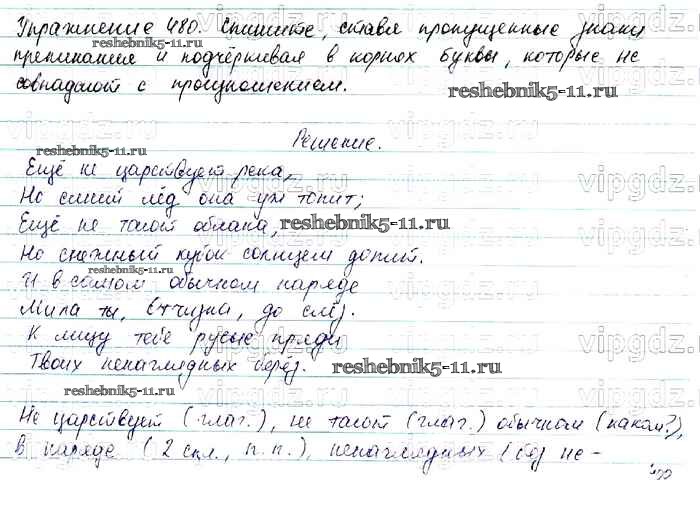 Упражнение 480. Спишите, ставя пропущенные знаки
препинания и подчёркивая в корнях буквы, которые не
совпадают с произношением.
Решение.
Ещё не царствует река,
Но синий лёд она уж топит;
Ещё не тают облака,
Но снежный кубок солнцем допит.
И в самом обычном наряде
Мила ты, Отчизна, до слёз.
К лицу тебе русые пряди
Твоих ненаглядных берёз.
Не царствует (глаг.), не тают (глаг.) обычном (каком?),
в наряде (2 скл., п.п.), ненаглядных (без не-
reshebnik5-11.ru
reshebnik5-11.ru
reshebnik5-11.ru
reshebnik5-11.ru
reshebnik5-11.ru
reshebnik5-11.ru
reshebnik5-11.ru
vipgdz.ru
vipgdz.ru
vipgdz.ru
vipgdz.ru